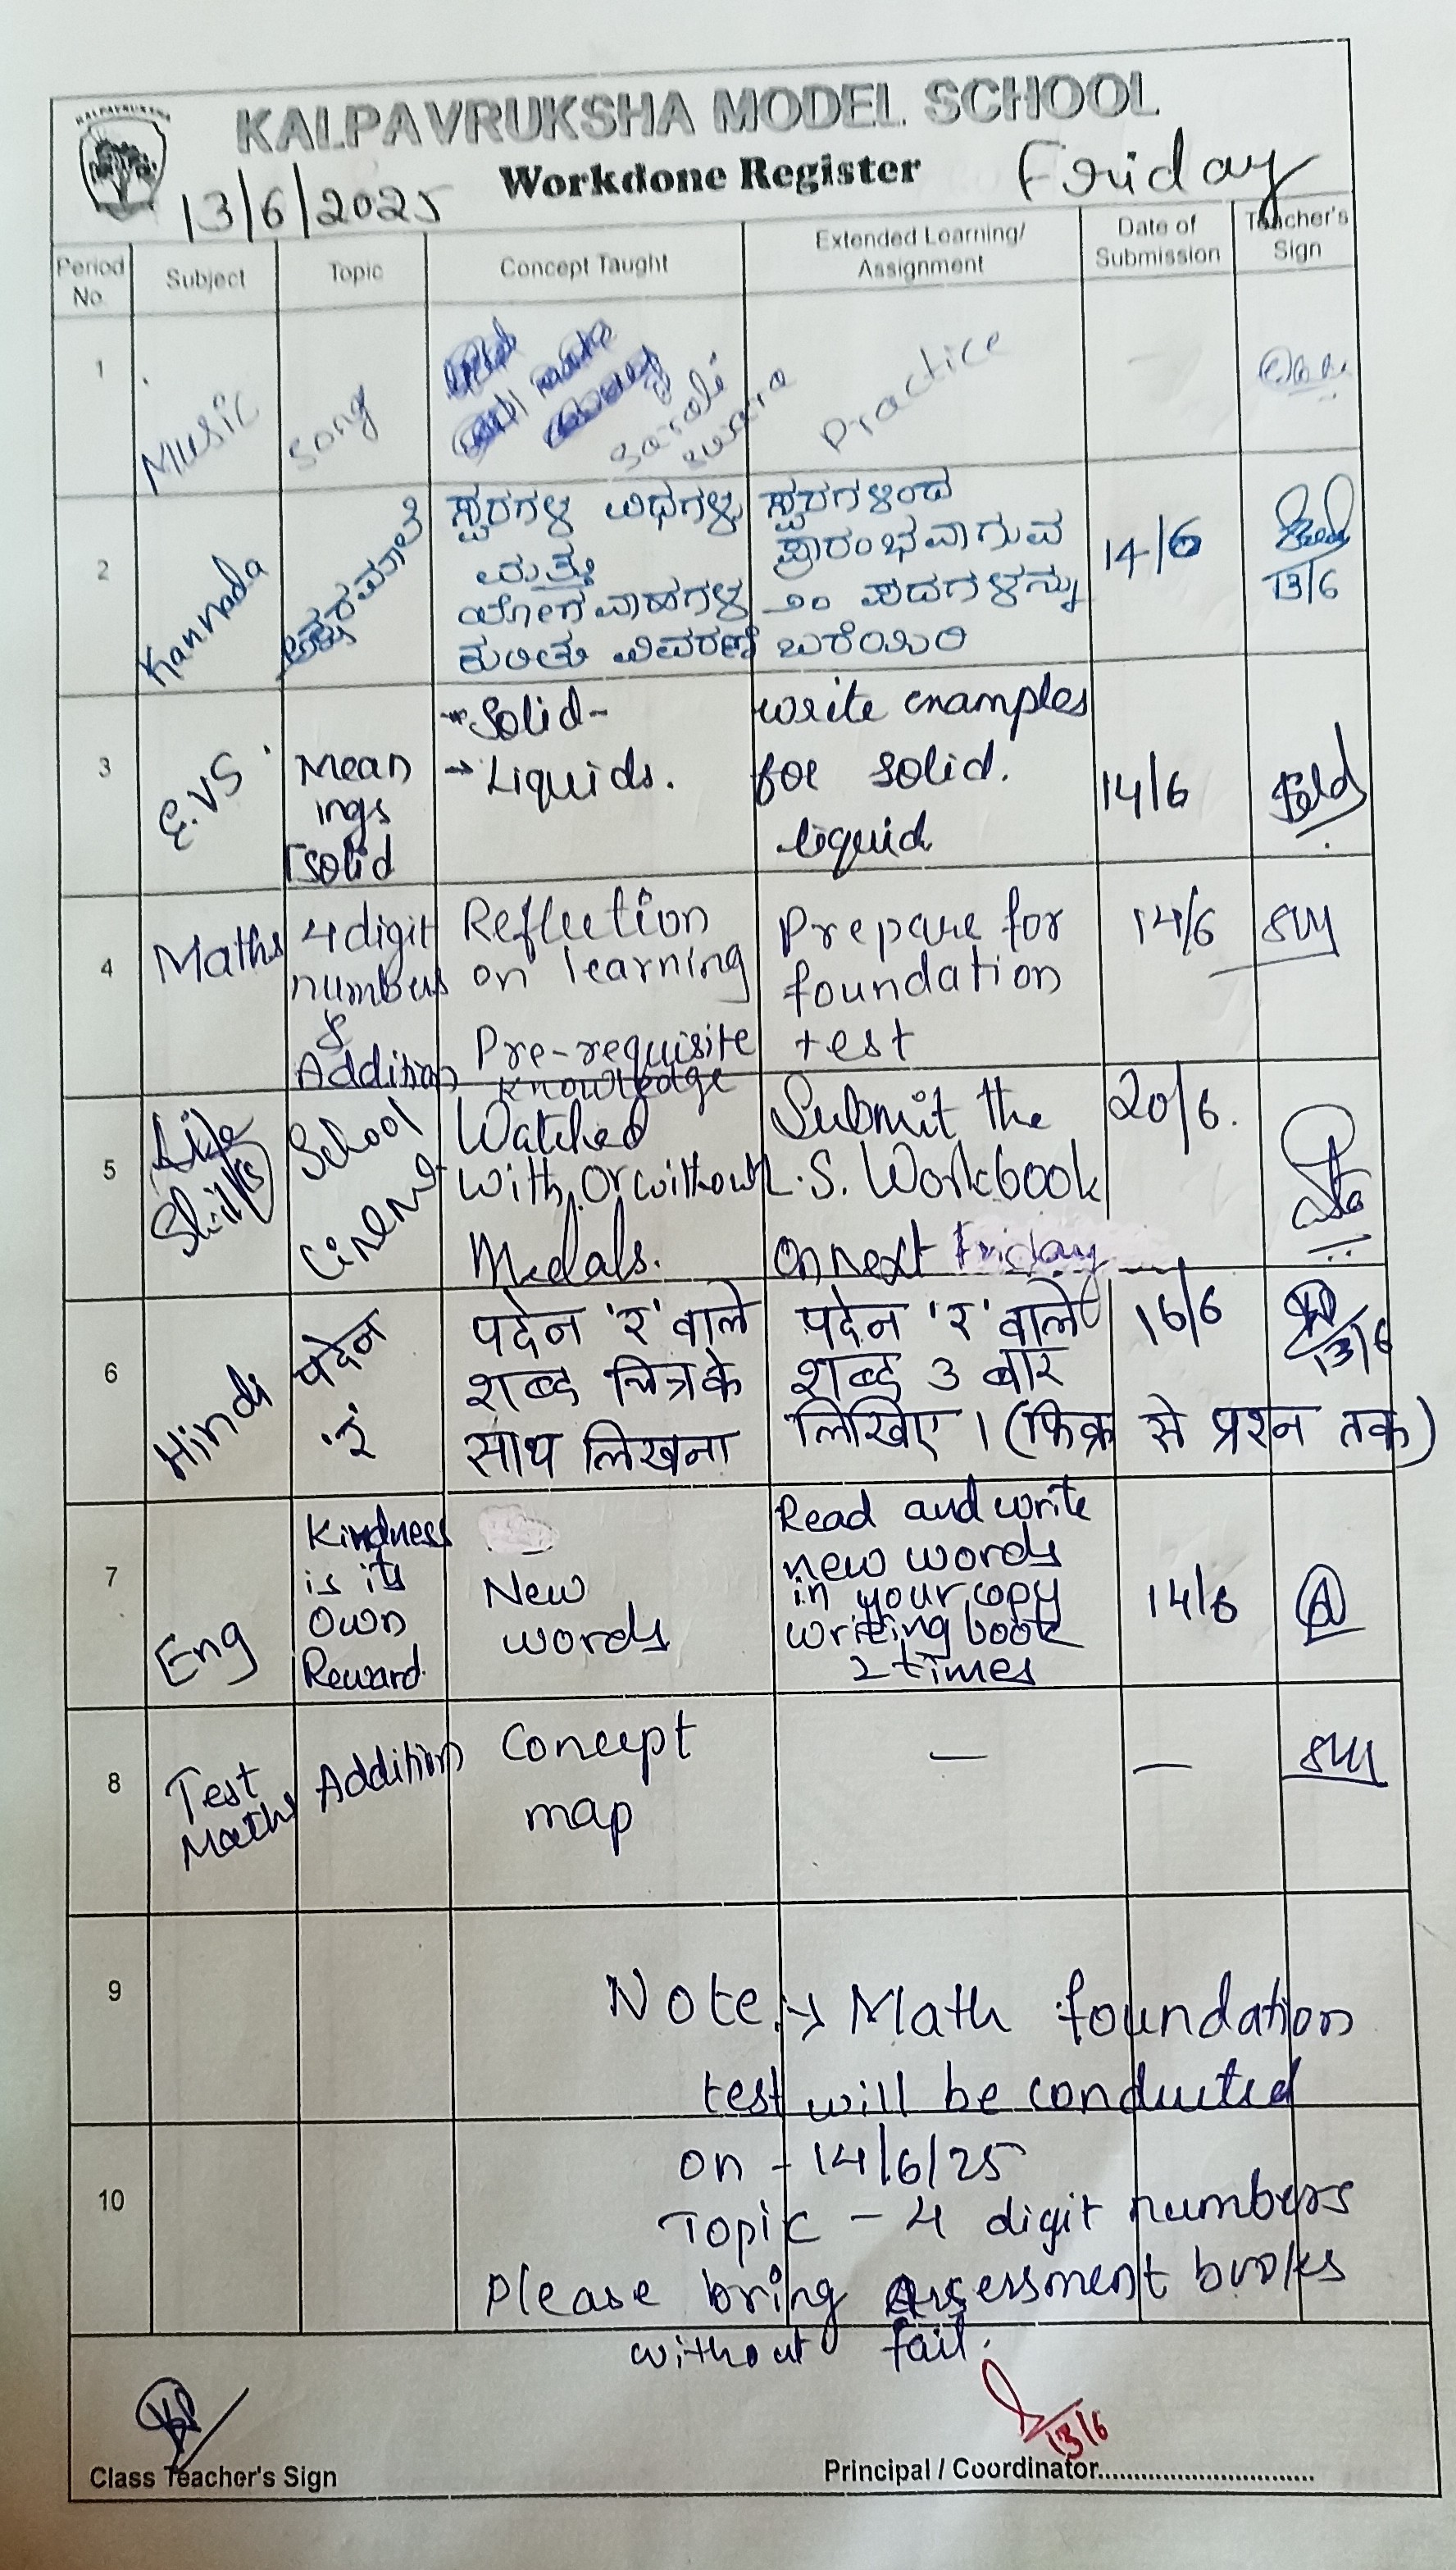 KALPAVRUKSHA
KALPAVRUKSHA MODEL SCHOOL
Workdone Register
13/6/2025
Friday
Period No.
Subject
Topic
Concept Taught
Extended Learning/
Assignment
Date of
Submission
Teacher's
Sign
1
Music
song
sarali
swara
Practice
—
2
Kannada
ಅಕ್ಷರಮಾಲೆ
ಸ್ವರಗಳ ವಿಧಗಳು
ಮತ್ತು
ಯೋಗವಾಹಗಳ
ಕುರಿತು ವಿವರಣೆ
ಸ್ವರಗಳಿಂದ
ಪ್ರಾರಂಭವಾಗುವ
೨೦ ಪದಗಳನ್ನು
ಬರೆಯಿರಿ
14/6
13/6
3
E.VS
Mean
ings
solid
→ Solid-
→ Liquids.
write examples
for solid.
liquid
14/6
4
Maths
4 digit
numbers
&
Addition
Reflection
on learning
Pre-requisite
knowledge
Prepare for
foundation
test
14/6
5
Life
Skills
School
Cinema
Watched
With, Or without
Medals.
Submit the
L.S. Workbook
on next Friday
20/6.
6
Hindi
पदेन
'र'
पदेन 'र' वाले
शब्द चित्र के
साथ लिखना
पदेन 'र' वाले
शब्द 3 बार
लिखिए । (फिक्र से प्रश्न तक)
16/6
13/6
7
Eng
Kindness
is its
Own
Reward.
New
words
Read and write
new words
in your copy
writing book
2 times
14/6
8
Test
Maths
Addition
Concept
map
—
—
9
Note :→ Math foundation
test will be conducted
10
on - 14/6/25
Topic - 4 digit numbers
Please bring assessment books
without fail.
13/6
Class Teacher's Sign
Principal / Coordinator..............................